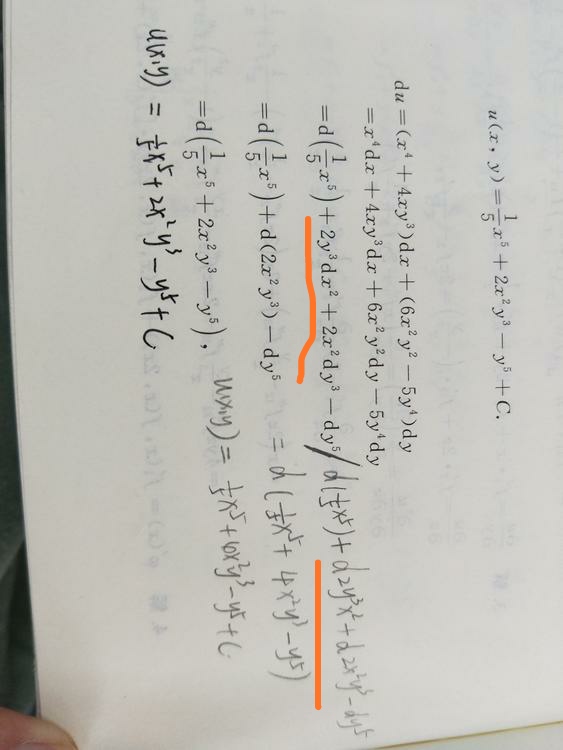 u(x, y) = 1/5 x⁵ + 2x²y³ − y⁵ + C.
du = (x⁴ + 4xy³)dx + (6x²y² − 5y⁴)dy
= x⁴dx + 4xy³dx + 6x²y²dy − 5y⁴dy
= d(1/5 x⁵) + 2y³dx² + 2x²dy³ − dy⁵ / d(1/5 x⁵) + d2y³x² + d2x²y³ − dy⁵
= d(1/5 x⁵) + d(2x²y³) − dy⁵ = d(1/5 x⁵ + 4x²y³ − y⁵)
= d(1/5 x⁵ + 2x²y³ − y⁵), u(x,y) = 1/5 x⁵ + x²y³ − y⁵ + C.
u(x,y) = 1/5 x⁵ + 2x²y³ − y⁵ + C.